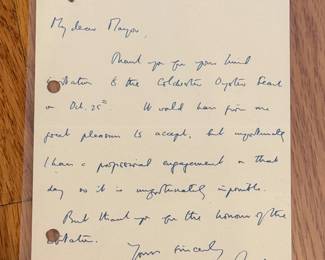 My dear Mayor,
Thank you for your kind
invitation to the Colchester Oyster Feast
on Oct. 25th. It would have given me
great pleasure to accept, but unfortunately
I have a professional engagement on that
day so it is unfortunately impossible.
But thank you for the honour of the
invitation.
Yours sincerely